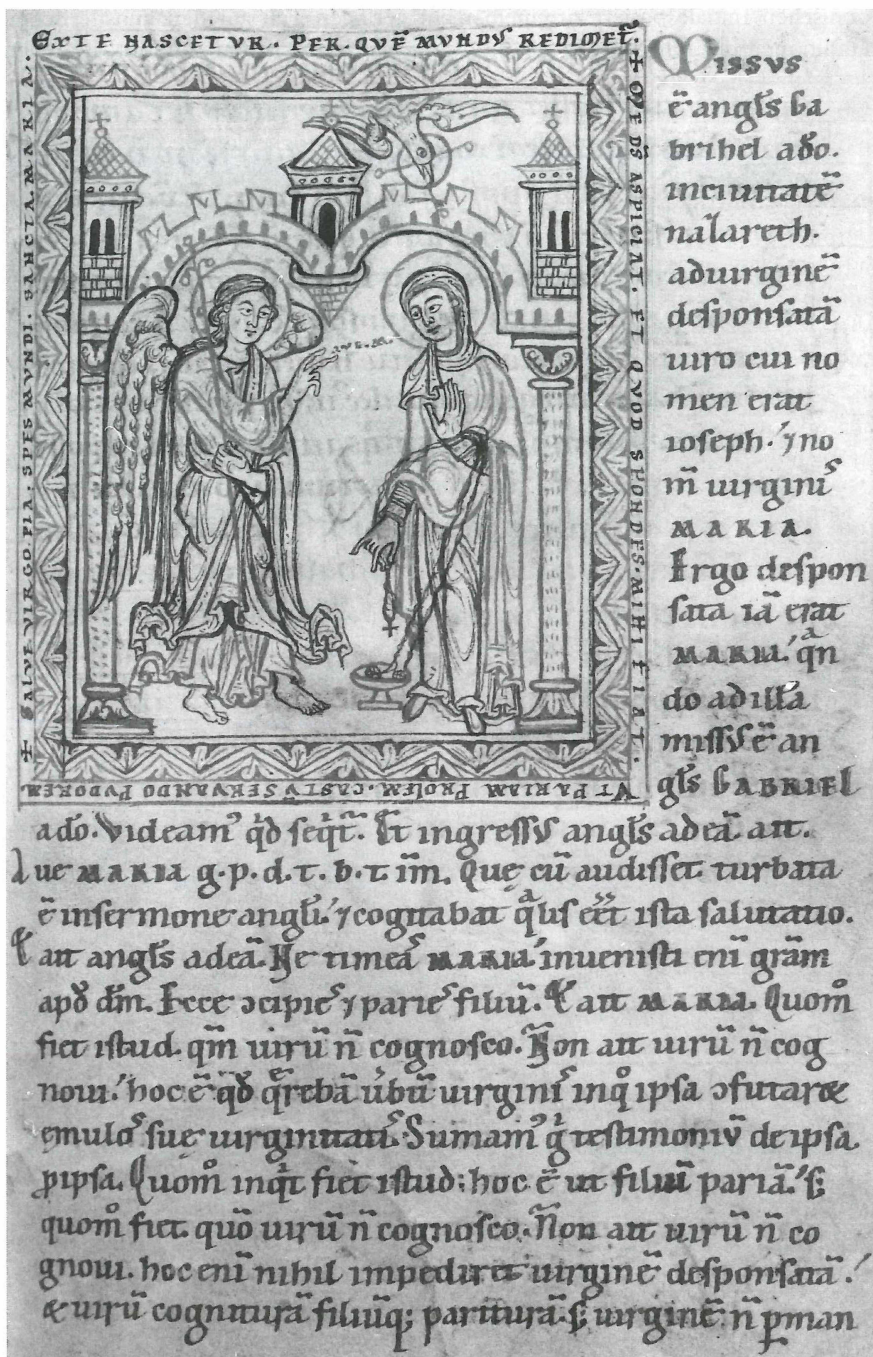 EX TE NASCETVR. PER. QVĒ MVNDVS REDIMET̄.
+ SALVE VIRGO PIA. SPES MVNDI. SANCTA. MARIA.
+ ME DS̄ ASPICIAT. ET QVOD SPONDES. MIHI FIAT.
VT PARIAM PROLEM. CASTV SERVANDO PVDOREM
AVE. M.
MISSVS
ē angl̄s Ga
brihel a dō.
in ciuitatē
nazareth.
ad uirginē
desponsatā
uiro cui no
men erat
ioseph. ⁊ no
m̄ uirginis
MARIA.
Ergo despon
sata iā erat
MARIA. qͣn
do ad illā
missus ē an
gl̄s GABRIEL
a dō. Videamꝰ qd̄ seqͥt̄. Et ingressus angl̄s ad eā ait.
Aue MARIA g. p. d. t. b. t. i m̄. Quę cū audisset turbata
ē in sermone angl̄i. ⁊ cogitabat qͣlis eēt ista salutatio.
Et ait angl̄s ad eā. Ne timeas MARIA. inuenisti eni gr̄am
apd̄ dm̄. Ecce ↄcipies ⁊ paries filiū. Et ait MARIA. Quom̊
fiet istud. qm̄ uirū n̄ cognosco. Non ait uirū n̄ cog
noui. hoc ē qd̄ qͣrebā ūbū uirginis inq̊ ipsa ↄfutare
emulos suę uirginitatis. Sumamꝰ gͥ testimoniū de ipsa
ꝓ ipsa. Quom̊ inqͥt fiet istud; hoc ē ut filiū pariā. s;
quom̊ fiet quō uirū n̄ cognosco. Non ait uirū n̄ co
gnoui. hoc enī nihil impediret uirginē desponsatā.
& uirū cogniturā filiūq; pariturā. s; uirginē n̄ ꝑman